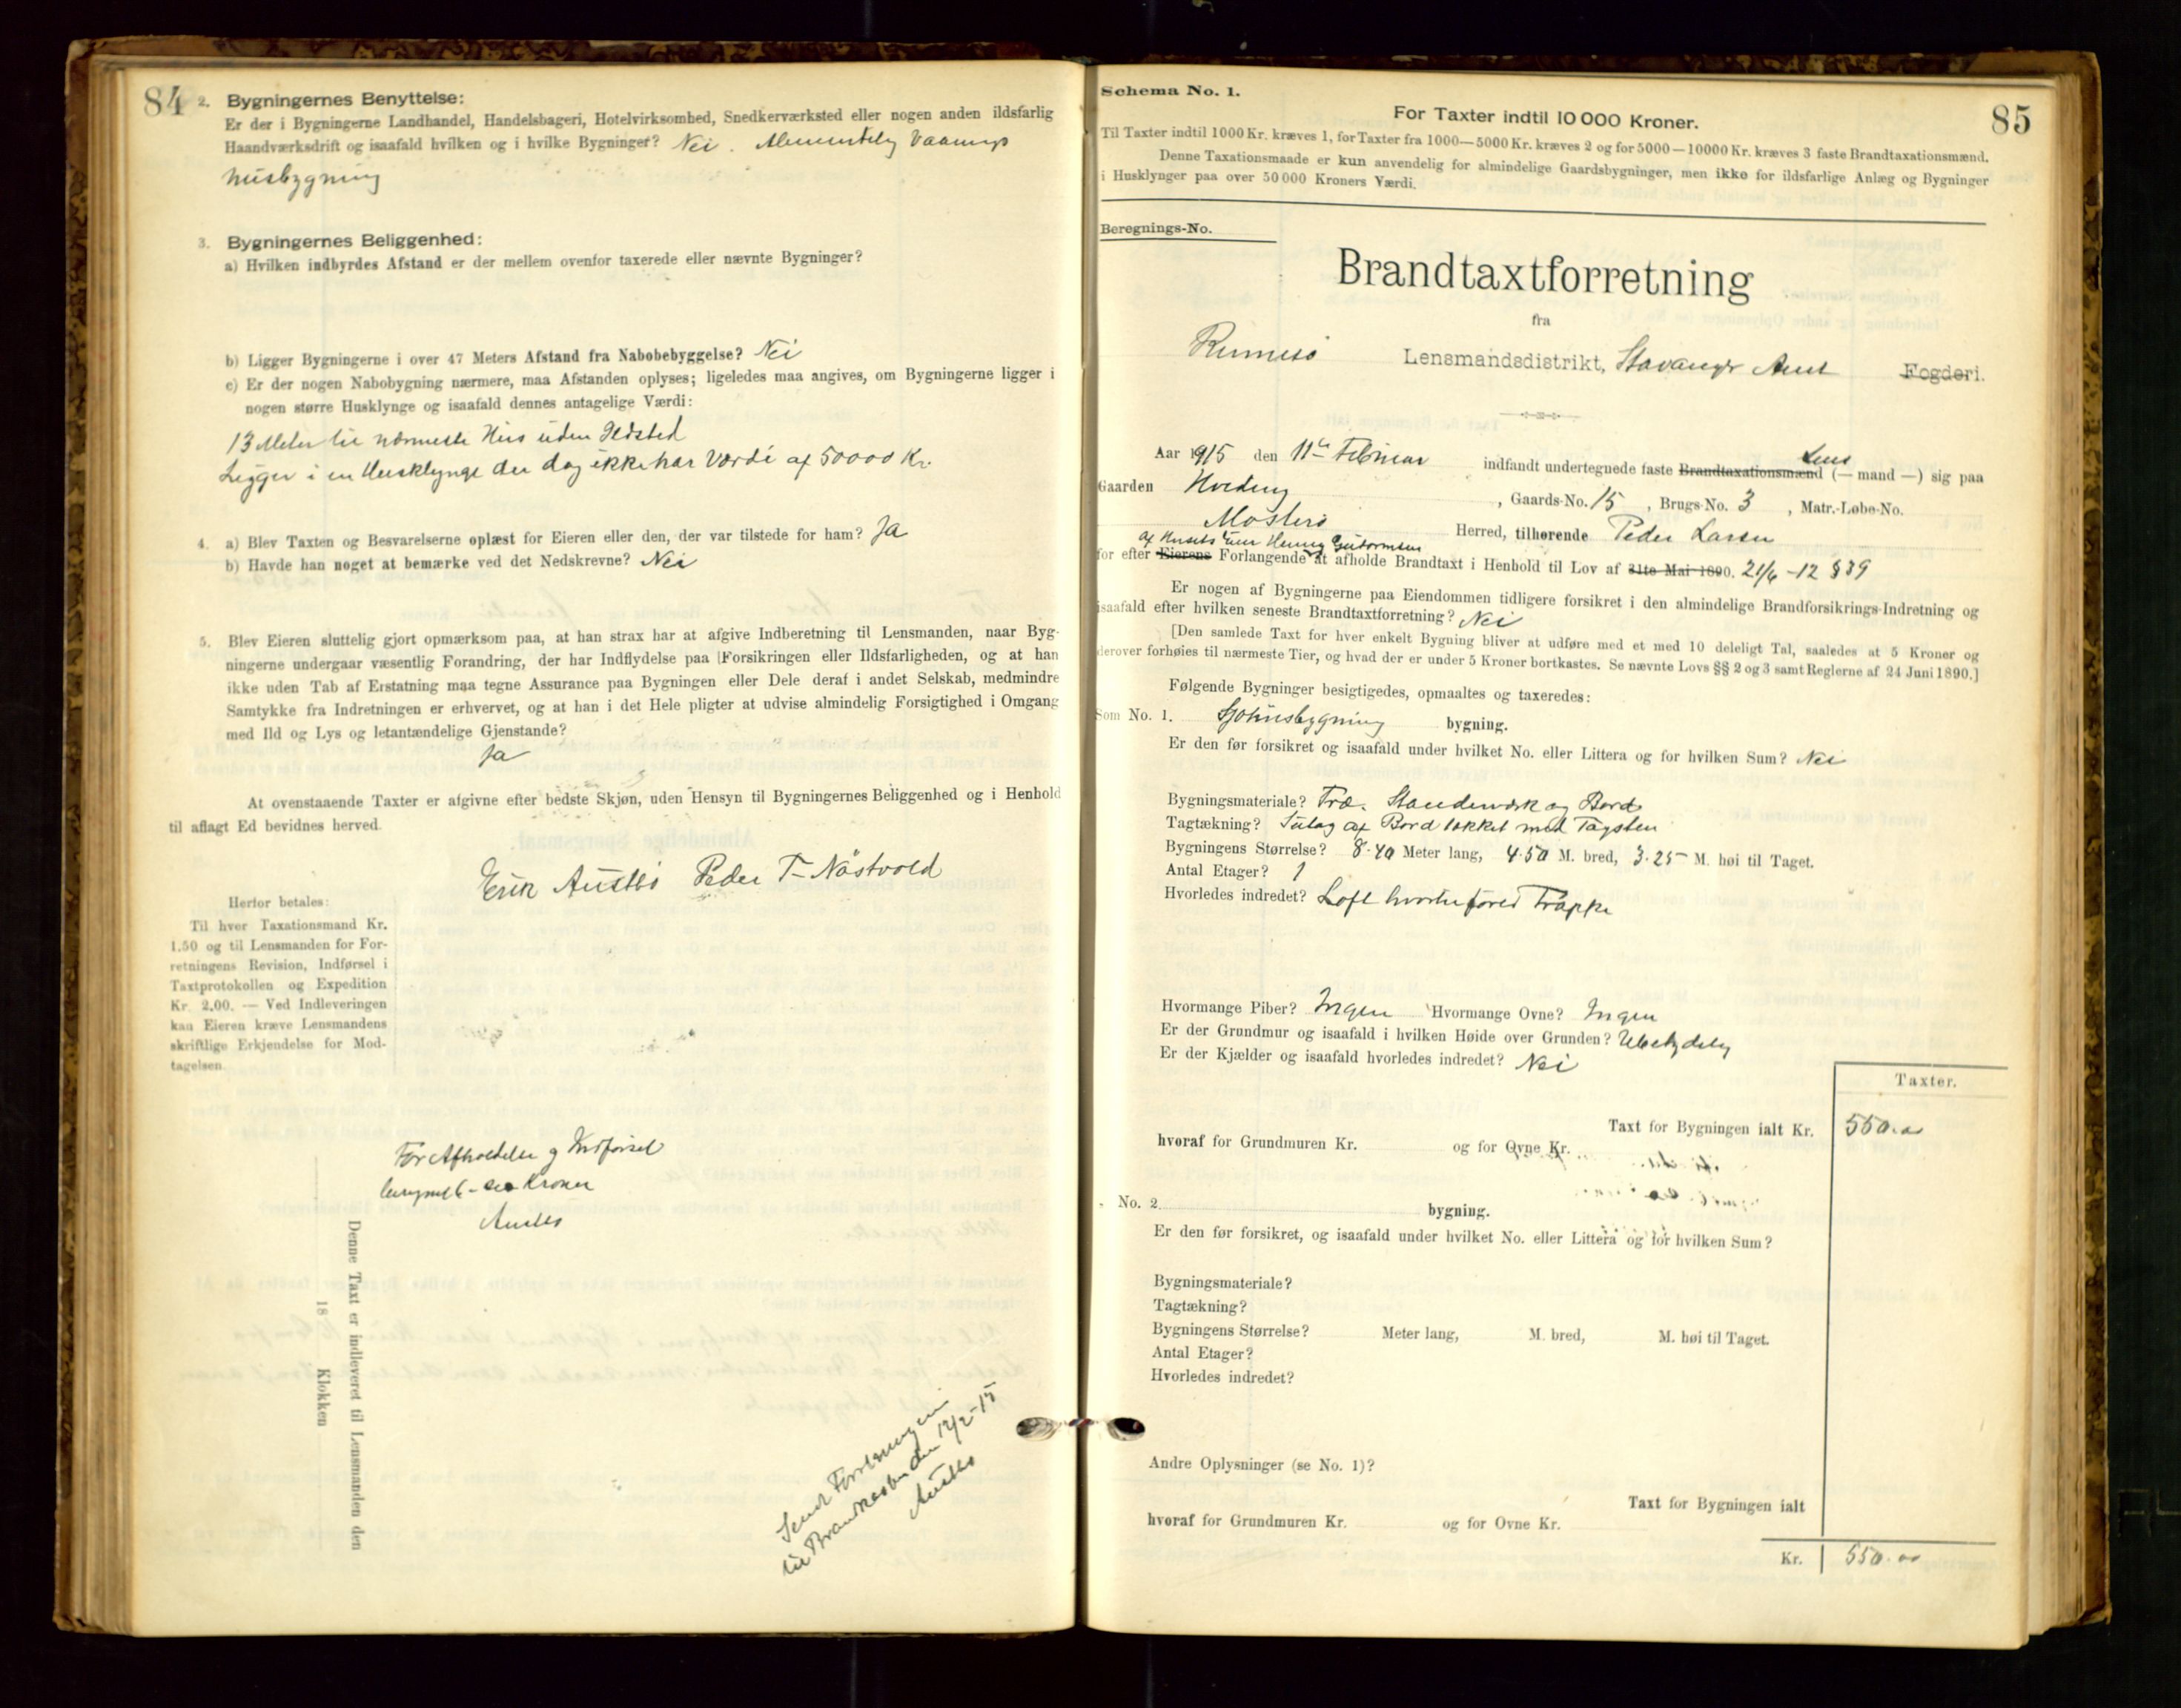 84
2. Bygningernes Benyttelse:
Er der i Bygningerne Landhandel, Handelsbageri, Hotelvirksomhed, Snedkerværksted eller nogen anden ildsfarlig
Haandværksdrift og isaafald hvilken og i hvilke Bygninger? Nei. Almindelig Vaanings
husbygning
3. Bygningernes Beliggenhed:
a) Hvilken indbyrdes Afstand er der mellem ovenfor taxerede eller nævnte Bygninger?
b) Ligger Bygningerne i over 47 Meters Afstand fra Nabobebyggelse? Nei
c) Er der nogen Nabobygning nærmere, maa Afstanden oplyses; ligeledes maa angives, om Bygningerne ligger i
nogen større Husklynge og isaafald dennes antagelige Værdi:
13 Meter til nærmeste Hus uden Ildsted
Ligger i en Husklynge der dog ikke har Værdi af 50000 Kr.
4. a) Blev Taxten og Besvarelserne oplæst for Eieren eller den, der var tilstede for ham? Ja
b) Havde han noget at bemærke ved det Nedskrevne? Nei
5. Blev Eieren sluttelig gjort opmærksom paa, at han strax har at afgive Indberetning til Lensmanden, naar Byg-
ningerne undergaar væsentlig Forandring, der har Indflydelse paa Forsikringen eller Ildsfarligheden, og at han
ikke uden Tab af Erstatning maa tegne Assurance paa Bygningen eller Dele deraf i andet Selskab, medmindre
Samtykke fra Indretningen er erhvervet, og at han i det Hele pligter at udvise almindelig Forsigtighed i Omgang
med Ild og Lys og letantændelige Gjenstande?
Ja
At ovenstaaende Taxter er afgivne efter bedste Skjøn, uden Hensyn til Bygningernes Beliggenhed og i Henhold
til aflagt Ed bevidnes herved.
Erik Austbø Peder T. Nåstvold
Herfor betales:
Til hver Taxationsmand Kr.
1.50 og til Lensmanden for For-
retningens Revision, Indførsel i
Taxtprotokollen og Expedition
Kr. 2,00. — Ved Indleveringen
kan Eieren kræve Lensmandens
skriftlige Erkjendelse for Mod-
tagelsen.
For Afholdelse og Indførsel
beregnet 6 - Kroner
Austbø
Denne Taxt er indleveret til Lensmanden den
18 Klokken
Sendt Forretningen
til Brandkassen den 12/2-15
Austbø
Schema No. 1.
85
For Taxter indtil 10 000 Kroner.
Til Taxter indtil 1000 Kr. kræves 1, for Taxter fra 1000—5000 Kr. kræves 2 og for 5000—10000 Kr. kræves 3 faste Brandtaxationsmænd.
Denne Taxationsmaade er kun anvendelig for almindelige Gaardsbygninger, men ikke for ildsfarlige Anlæg og Bygninger
i Husklynger paa over 50 000 Kroners Værdi.
Beregnings-No.
Brandtaxtforretning
fra
Rennesø Lensmandsdistrikt, Stavanger Amt Fogderi.
Aar 1915 den 11te Februar indfandt undertegnede faste Brandtaxationsmænd Lens (— mand —) sig paa
Gaarden Hveding, Gaards-No. 15, Brugs-No. 3, Matr.-Løbe-No.
Mosterø Herred, tilhørende Peder Larsen
for efter Eierens af Husets Forlangende at afholde Brandtaxt i Henhold til Lov af 31te Mai 1890. 21/6 -12 § 39
Er nogen af Bygningerne paa Eiendommen tidligere forsikret i den almindelige Brandforsikrings-Indretning og
isaafald efter hvilken seneste Brandtaxtforretning? Nei
[Den samlede Taxt for hver enkelt Bygning bliver at udføre med et med 10 deleligt Tal, saaledes at 5 Kroner og
derover forhøies til nærmeste Tier, og hvad der er under 5 Kroner bortkastes. Se nævnte Lovs §§ 2 og 3 samt Reglerne af 24 Juni 1890.]
Følgende Bygninger besigtigedes, opmaaltes og taxeredes:
Som No. 1. Sjøhusbygning bygning.
Er den før forsikret og isaafald under hvilket No. eller Littera og for hvilken Sum? Nei
Bygningsmateriale? Træ. Standerværk og Bord
Tagtækning? Sutag af Bord tækket med Tagsten
Bygningens Størrelse? 8.40 Meter lang, 4.50 M. bred, 3.25 M. høi til Taget.
Antal Etager? 1
Hvorledes indredet? Loft hvortil fører Trappe
Hvormange Piber? Ingen Hvormange Ovne? Ingen
Er der Grundmur og isaafald i hvilken Høide over Grunden? Ubetydelig
Er der Kjælder og isaafald hvorledes indredet? Nei
Taxter.
Taxt for Bygningen ialt Kr. 550.00
hvoraf for Grundmuren Kr. og for Ovne Kr.
No. 2 bygning.
Er den før forsikret, og isaafald under hvilket No. eller Littera og for hvilken Sum?
Bygningsmateriale?
Tagtækning?
Bygningens Størrelse? Meter lang, M. bred, M. høi til Taget.
Antal Etager?
Hvorledes indredet?
Andre Oplysninger (se No. 1)?
Taxt for Bygningen ialt
hvoraf for Grundmuren Kr. og for Ovne Kr.
Kr. 550.00